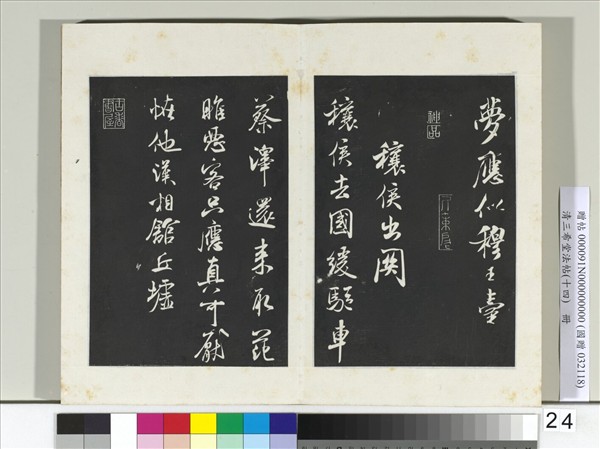 夢應似穆王臺
神品
穰侯出関
穰侯去國緩驅車
蔡澤還来取范
睢客只應真可厭
怪他漢相館丘墟
贈帖 000091N000000000 (國贈 032118)
清三希堂法帖(十四) 冊
24